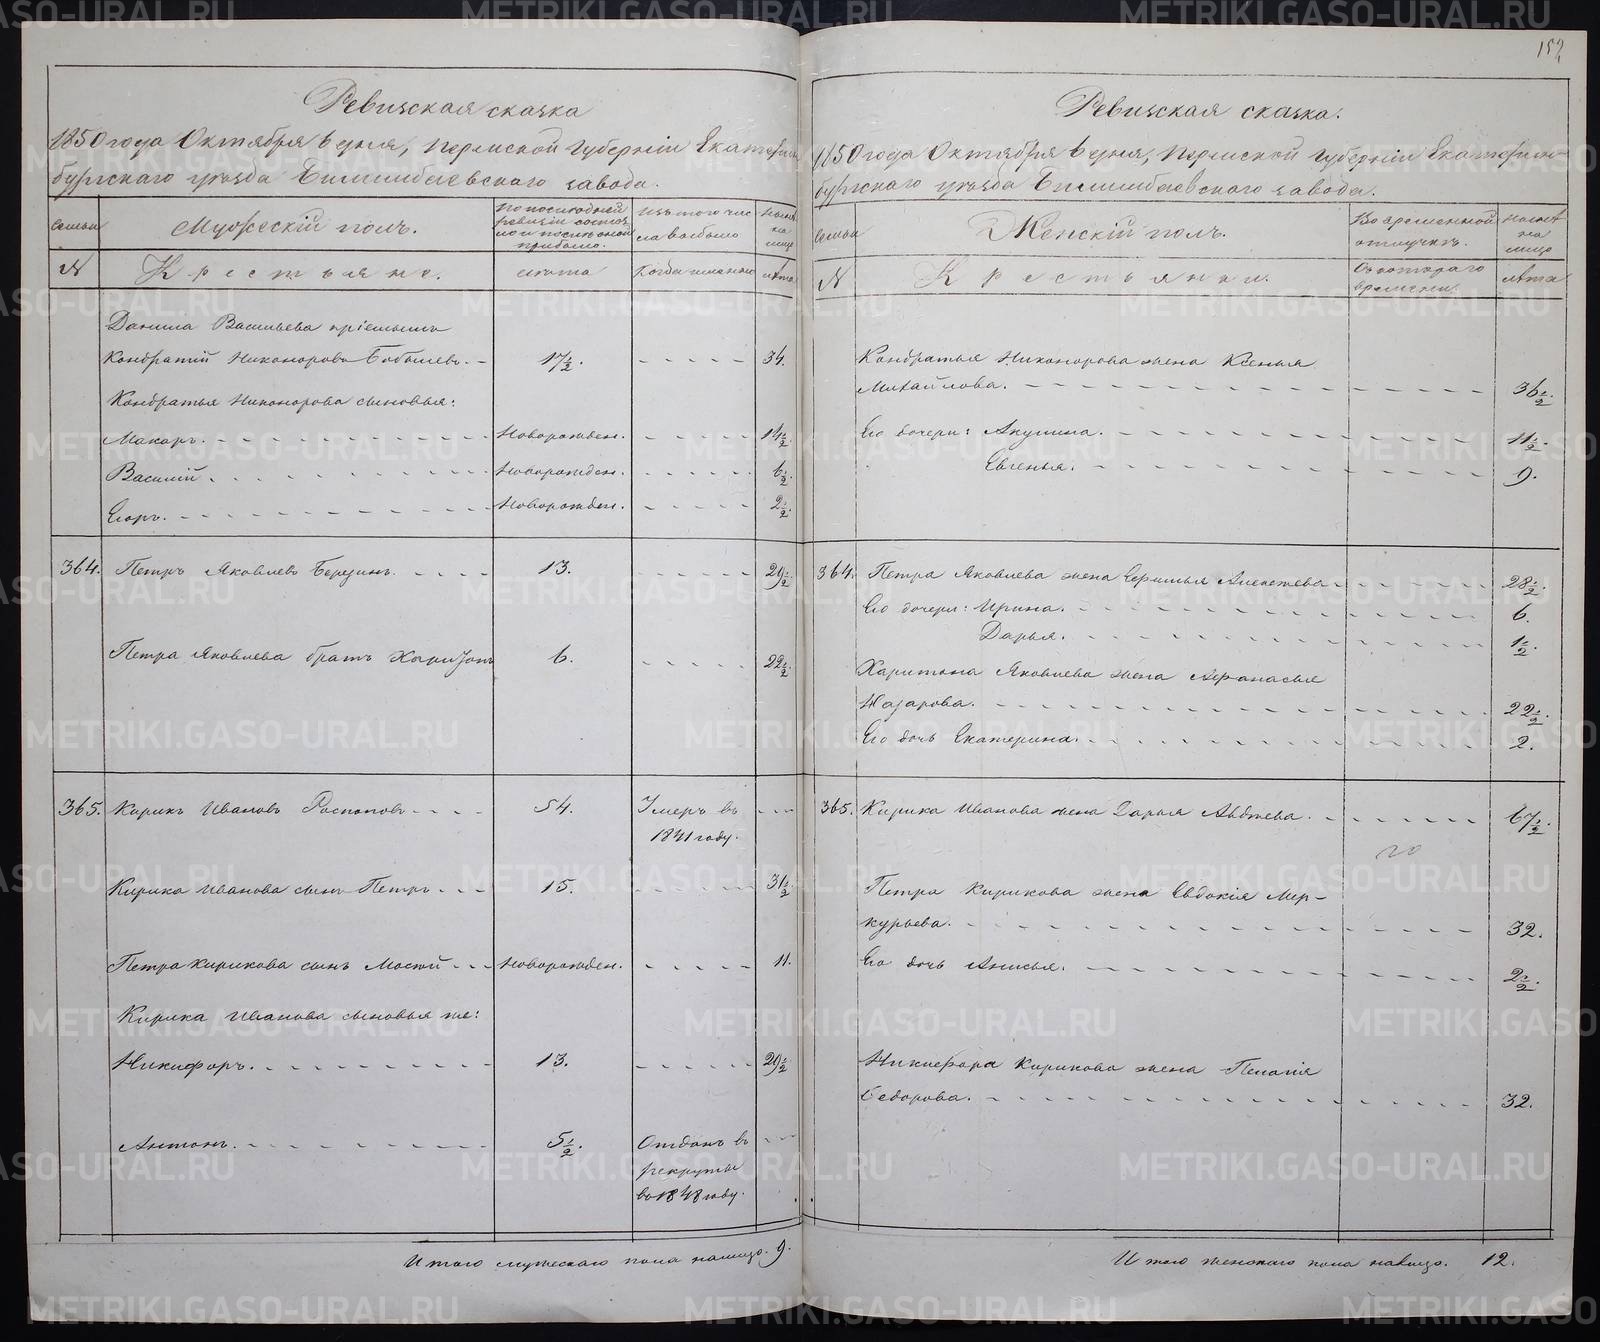 Ревизская сказка
1850 года Октября 6 дня, Пермской Губернии Екатерин
бургскаго уезда Билимбаевскаго завода.
семьи
Мужескій полъ.
По последней ревизіи состояло и после оной прибыло.
Изъ того числа выбыло
Ныне на лицо
N
Крестьяне.
лета
Когда именно
лета
Данила Васильева пріемышъ
Кондратий Никоноровъ Бобылевъ. 17½ 34.
Кондратья Никонорова сыновья:
Макаръ. Новорожден. 14½.
Василій. Новорожден. 6½.
Егоръ. Новорожден. 2½.
364. Петръ Яковлевъ Березинъ. 13. 29½.
Петра Яковлева братъ Харитонъ 6. 22½.
365. Кирикъ Ивановъ Распоповъ 54. Умеръ въ
1841 году.
Кирика Иванова сынъ Петръ 15. 31½.
Петра Кирикова сынъ Новорожден. 11.
Кирика Иванова сыновья же:
Никифоръ. 13. 29½
Антонъ. 5½. Отданъ въ
рекруты
въ 1848 году.
Итого мужескаго пола налицо. 9.
152
Ревизская сказка.
1850 года Октября 6 дня, Пермской Губерніи Екатерин-
бургскаго уезда Билимбаевскаго завода.
Семьи
Женскій полъ.
Во временной отлучке.
Ныне на лицо
N
Крестьянки.
Съ котораго времени.
лета
Кондратья Никонорова жена Ксенья
Михайлова. 36½.
Его дочери: Акулина. 11½.
Евгенья. 9.
364. Петра Яковлева жена Алексеева 28½.
Его дочери: Ирина. 6.
Дарья. 1½.
Харитона Яковлева жена Афанасья
Назарова. 22½.
Его дочь Екатерина. 2.
365. Кирика Иванова жена Дарья Авдеева. 67½.
Петра Кирикова жена Евдокія Мер-
курьева. 32.
Его дочь Анисья. 2½.
Никифора Кирикова жена Пелагія
Федорова. 32.
Итого женскаго пола налицо. 12.
METRIKI.GASO-URAL.RU